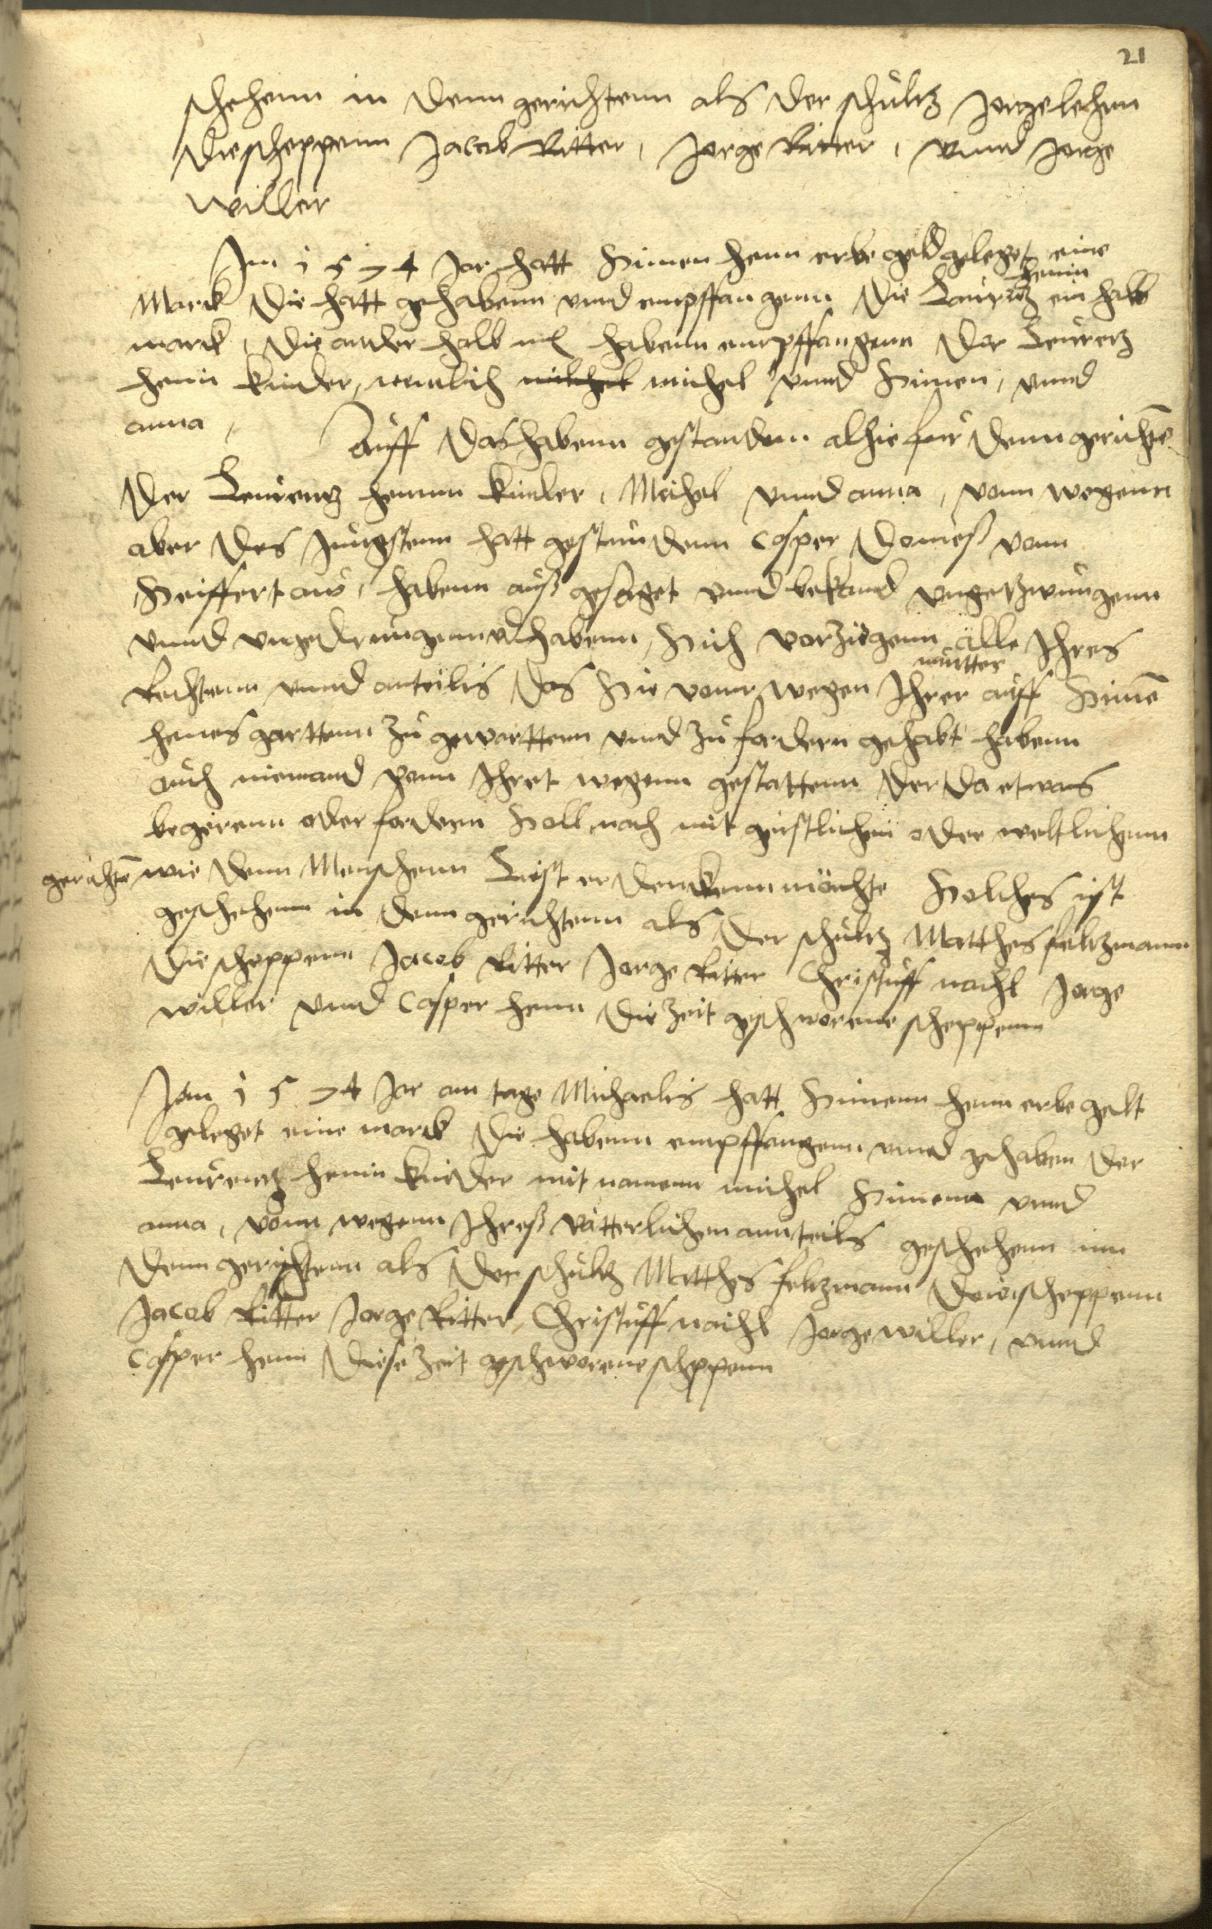 21
schehenn in denn gerichtenn als der schultz Jorge lehen
die scheppenn Jacob Ritter, Jorge Ritter, vnnd Jorge
willer
Im 1574 Jor hatt Simen henn erbe geld geleget eine
Marck die hatt gehabenn vnnd empffangenn die Laurentz henin ein halb
marck, die ander halb m habenn empffangenn der Leurentz
henin kinder, nemlich michel michel vnnd Simen, vnnd
anna,
Auff das habenn gestanden alhie fur denn gerichte
der Leurentz hennin kinder, Michel vnnd anna, vonn wegenn
aber des Jungstenn hatt gestandenn Casper Domes vonn
Seiffertaw, habenn auss gesaget vnnd bekand vngetzwungenn
vnnd vngedrungenn habenn sich vorziegenn alle Ihres
Rechtenn vnnd anteilis das sie vonn wegen Ihrer mutter auff Simen
henes garttenn zu gewarttenn vnnd zu fordern gehabt habenn
auch niemand vonn Ihret wegenn gestattenn der da etwas
begerenn oder fordern soll, noch mit geistlichen oder weltlichenn
gerichten wie denn Menschenn List erdenckenn möchte Solches ist
geschehenn in denn gerichtenn als der schultz Matthes feltzmann
die scheppenn Jacob Ritter Jorge Ritter Christuff nachl Jorge
willer vnnd Casper henn die zeit geschworene scheppenn
Im 1574 Jor am tage Michaelis hatt Simenn henn erbe gelt
geleget eine marck die habenn empffangenn vnnd gehaben der
Leurentz henin kinder mit namenn michel Simenn vnnd
anna, vonn wegenn Ihres vätterlichenn annteils geschehenn inn
denn gerichtenn als der schultz Matthes feltzmann die scheppenn
Jacob Ritter Jorge Ritter, Christuff nachl Jorge willer, vnnd
Casper henn diese zeit geschworene scheppenn